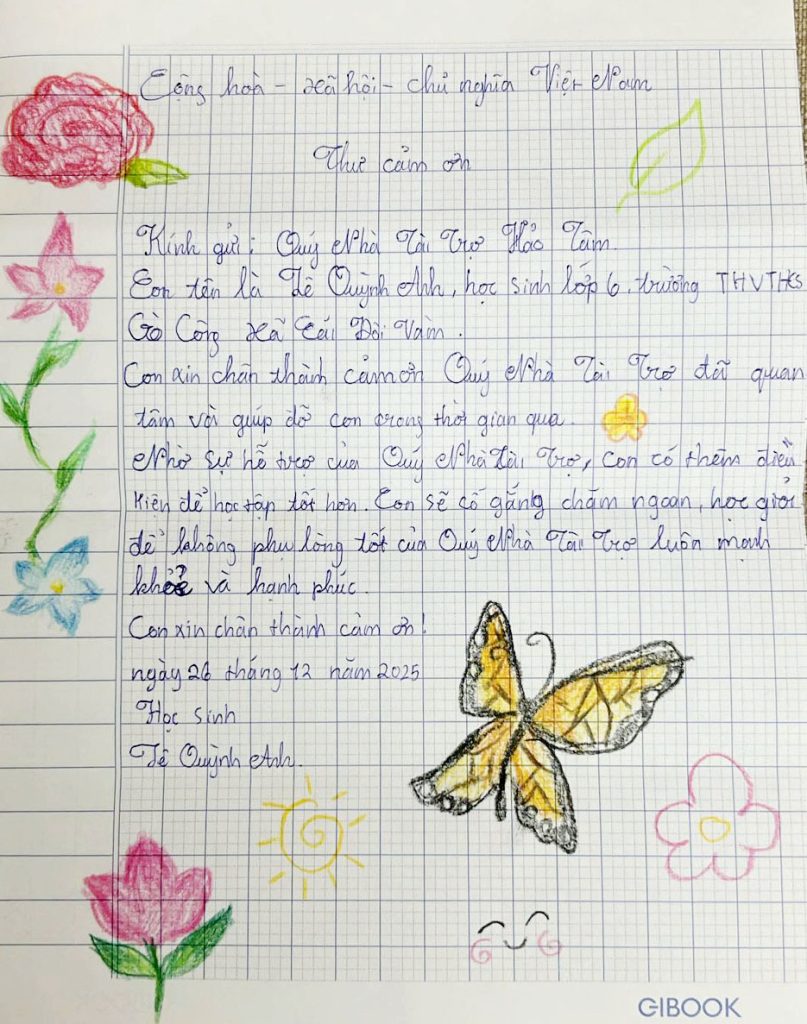 Cộng hoà - xã hội - chủ nghĩa Việt Nam
Thư cảm ơn
Kính gửi: Quý Nhà Tài Trợ Hảo Tâm.
Con tên là Lê Quỳnh Anh, học sinh lớp 6, trường THVTHCS
Gò Công xã Cái Đôi Vàm.
Con xin chân thành cảm ơn Quý Nhà Tài Trợ đã quan
tâm và giúp đỡ con trong thời gian qua.
Nhờ sự hỗ trợ của Quý Nhà Tài Trợ, con có thêm điều
kiện để học tập tốt hơn. Con sẽ cố gắng chăm ngoan, học giỏi
để không phụ lòng tốt của Quý Nhà Tài Trợ luôn mạnh
khoẻ và hạnh phúc.
Con xin chân thành cảm ơn!
ngày 26 tháng 12 năm 2025
Học sinh
Lê Quỳnh Anh.
GIBOOK